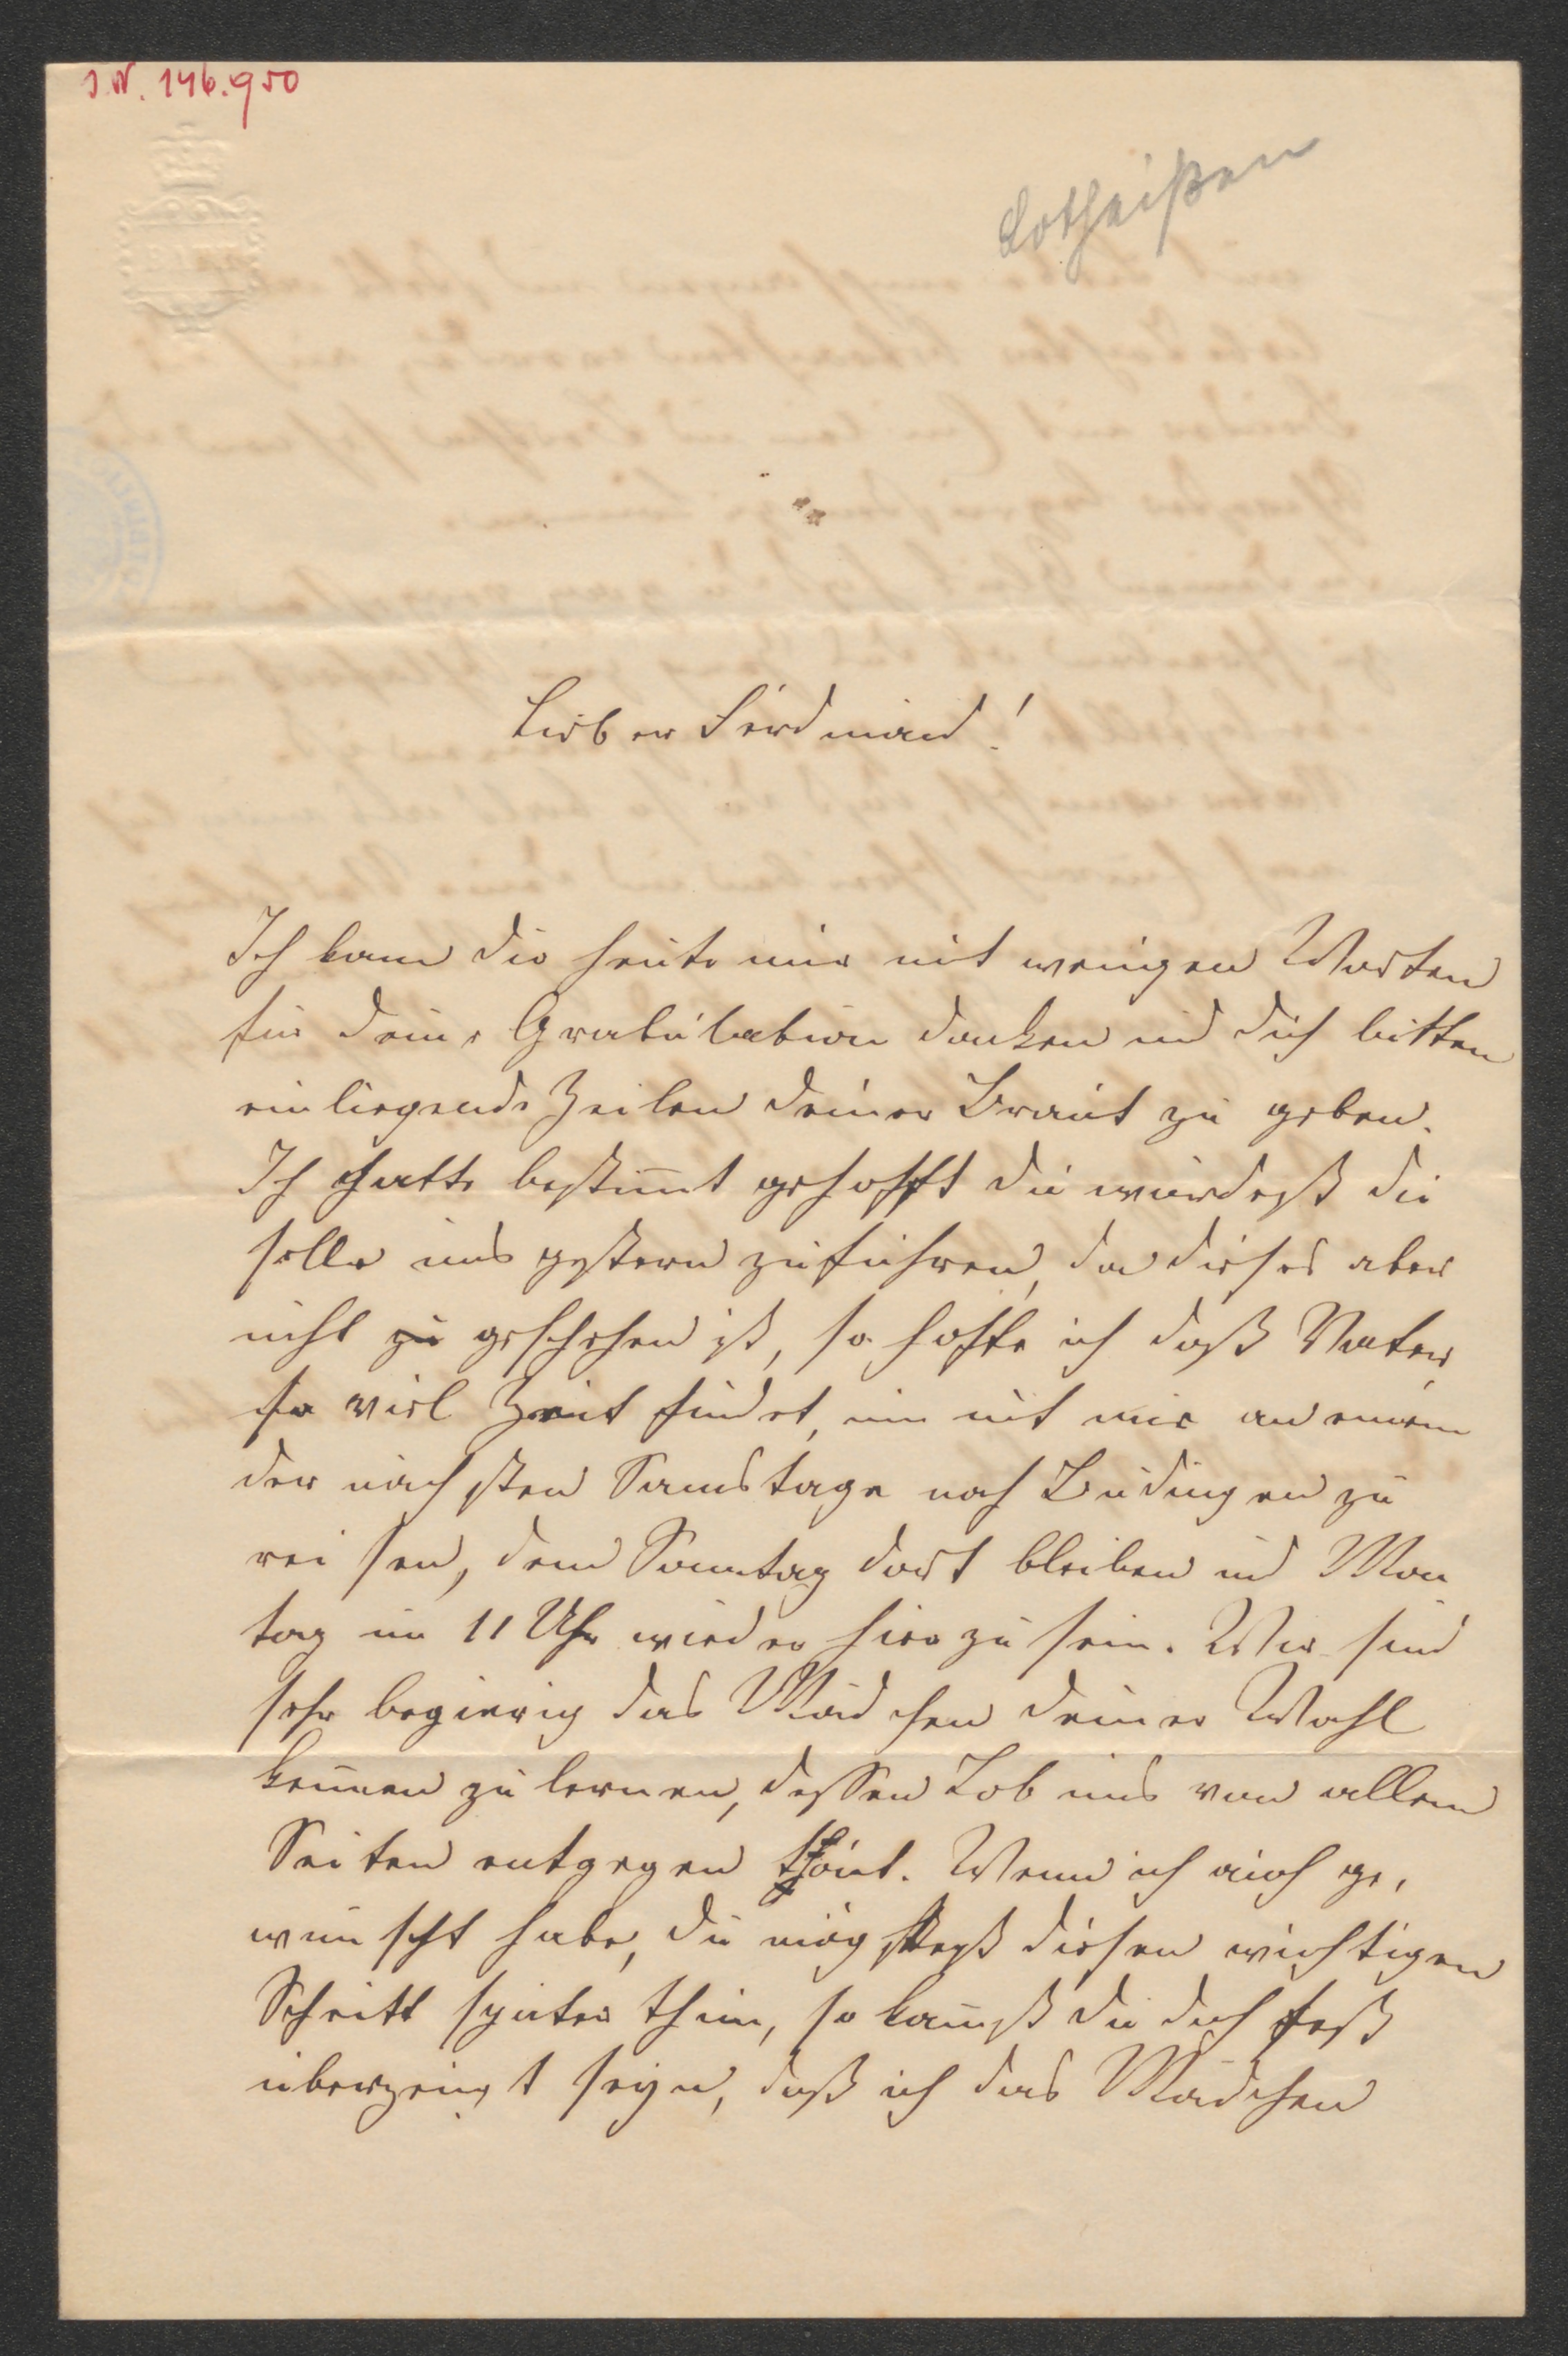 I.N. 146.950
Lotheißen
Lieber Ferdinand!
Ich kann dir heute nur mit wenigen Worten
für deine Gratulation danken und dich bitten
einliegende Zeilen deiner Braut zu geben.
Ich hatte bestim̄t gehofft du würdest die
selbe uns gestern zuführen, da dieses aber
nicht zu geschehen ist, so hoffe ich daß Vater
so viel Zeit findet, um mit mir an einem
der nächsten Samstage nach Büdingen zu
reisen, den Sonntag dort bleiben und Mon
tag um 11 Uhr wieder hier zu sein. Wir sind
sehr begierig das Mädchen deiner Wahl
kennen zu lernen, dessen Lob uns von allen
Seiten entgegen thönt. Wenn ich auch ge,
wünscht habe, du mögstest diesen wichtigen
Schritt später thun, so kannst du dich fest
überzeugt seyn, daß ich das Mädchen